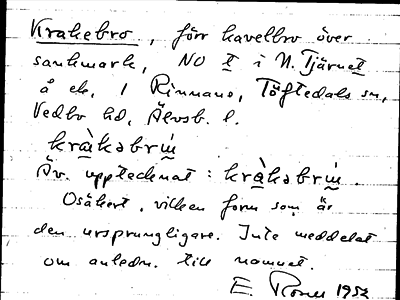 Krakebro, förr kavelbro över
sankmark, NO t i N. Tjärnet
å ek. 1 Rinnane, Töftedals sn,
Vedbo hd, Älvsb. l.
kràkəbrú̵
Äv. upptecknat: kràkəbrú̵.
Osäkert, vilken form som är
den ursprungligare. Inte meddelat
om anledn. till namnet.
E. 1952